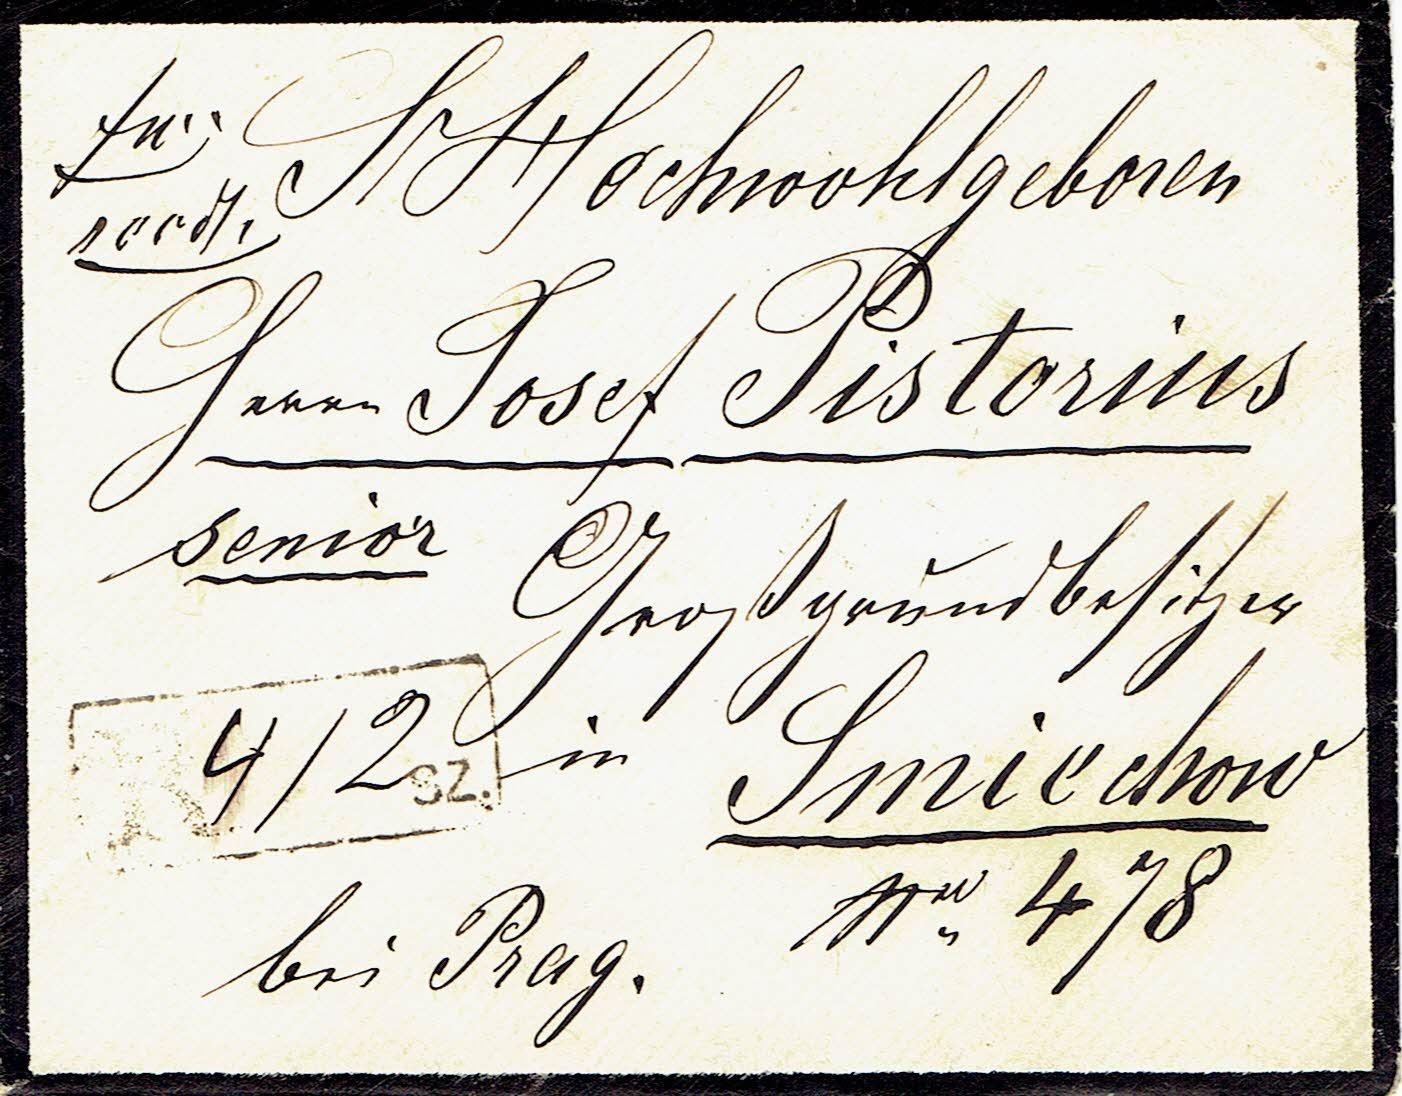 Sr Hochwohlgeboren
Herrn Josef Pistorius
senior Großgrundbesitzer
412
SZ.
in Smiechow
Nro 478
bei Prag.